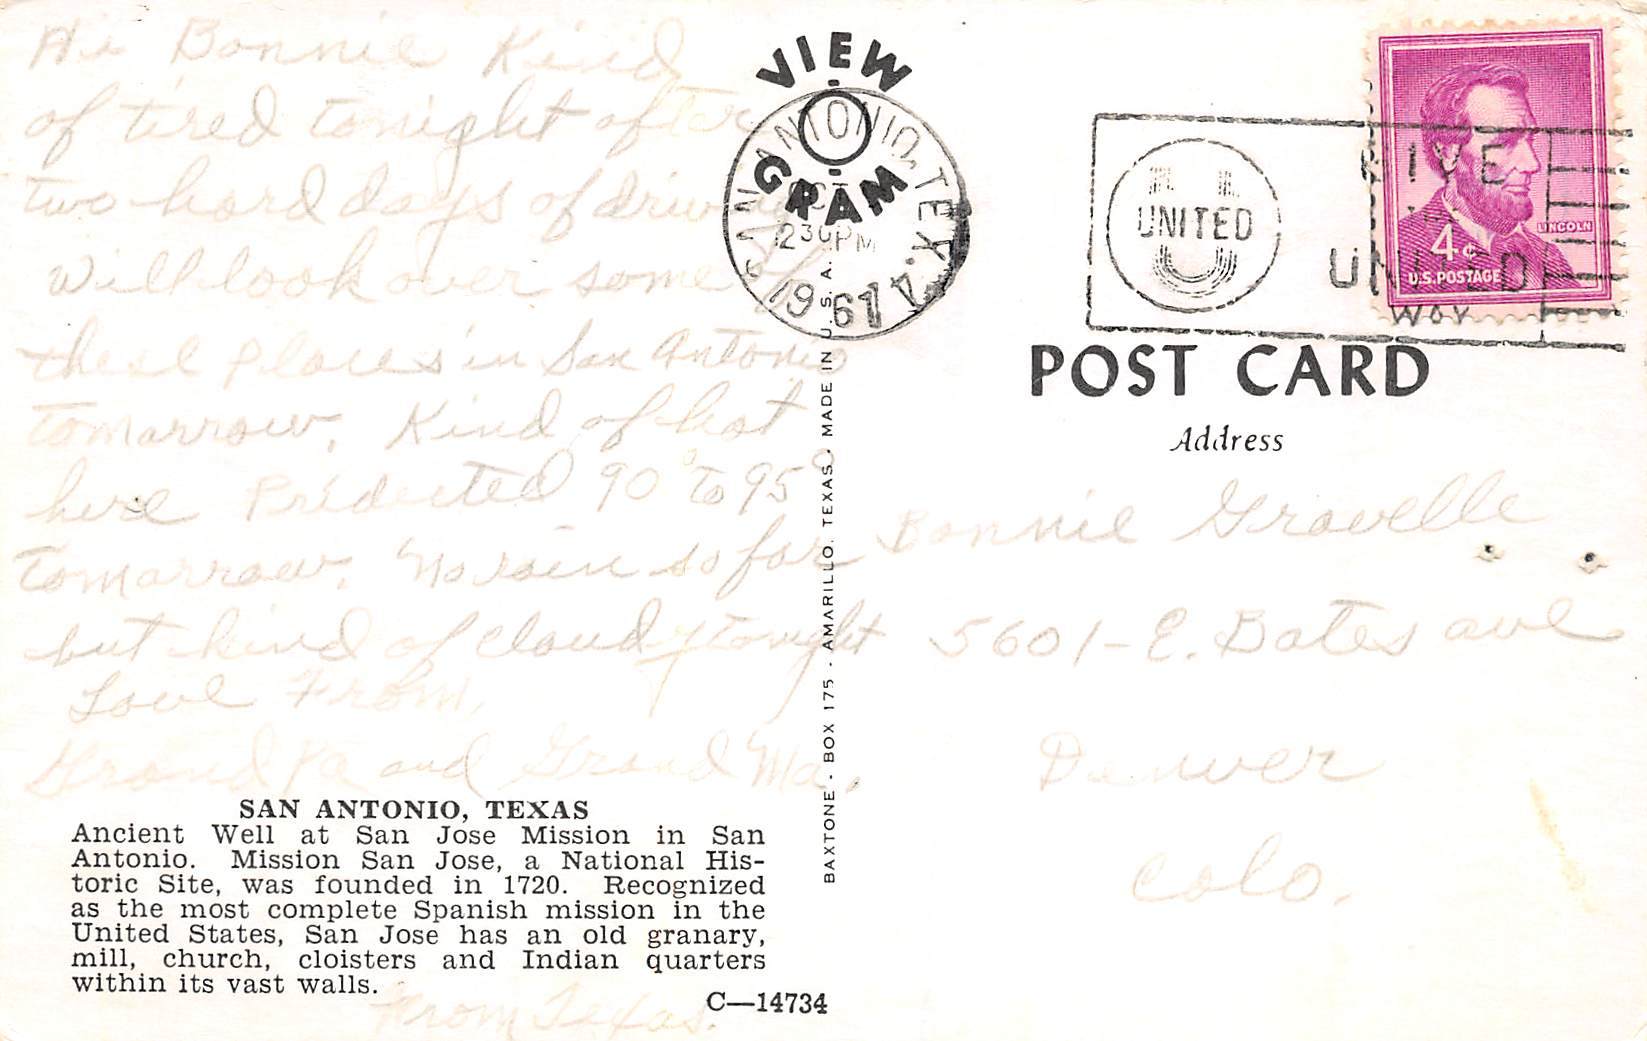 Hi Bonnie Kind
of tired tonight after
two hard days of driving
Will look over some of
these places in San Antonio
tomarrow. Kind of hot
here Predicted 90° to 95°
tomarrow. No rain so far
but kind of cloudy tonight
Love From,
Grand Pa and Grand Ma.
SAN ANTONIO, TEXAS
Ancient Well at San Jose Mission in San
Antonio. Mission San Jose, a National His-
toric Site, was founded in 1720. Recognized
as the most complete Spanish mission in the
United States, San Jose has an old granary,
mill, church, cloisters and Indian quarters
within its vast walls.
From Texas.
C—14734
VIEW
GRAM
SAN ANTONIO, TEX.
230PM
1961
BAXTONE - BOX 175 - AMARILLO, TEXAS. MADE IN U.S.A.
UNITED
GIVE
UNITED
WAY
LINCOLN
4¢
U.S. POSTAGE
POST CARD
Address
Bonnie Gravelle
5601-E. Bates ave
Denver
Colo.